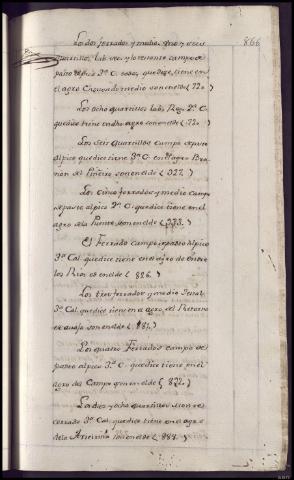 866
Los dos ferrados y medio, y
quartillos, lab. y lo restante campo de
pasto alpico 3ª C. que dice, tiene en
el agro son en el de (720)
Los ocho quartillos lab.º Reg. 2ª C.
que dice tiene en dho agro son en el de (720)
Los Seis quartillos Campo de pasto
alpico que dice tiene 3ª C. en el agro
del Piñeiro son en el de (322.)
Los Cinco ferrados y medio Campo
de pasto alpico 3ª C. que dice tiene en el
agro de la Puente son en el de (333.)
El Ferrado Campo de pasto alpico
3ª Cal. que dice tiene en el agro de entre
los Rios es en el de (826.)
Los tres ferrados y medio
3ª Cal. que dice tiene en el agro, del
de avajo son en el de (881.)
Los quatro Ferrados campo de
pasto alpico 3ª C. que dice tiene en el
agro del Campo son en el de (872.)
Los diez y ocho quartillos monte
cerrado 3ª Cal. que dice tiene en el agro
de la son en el de (883.)